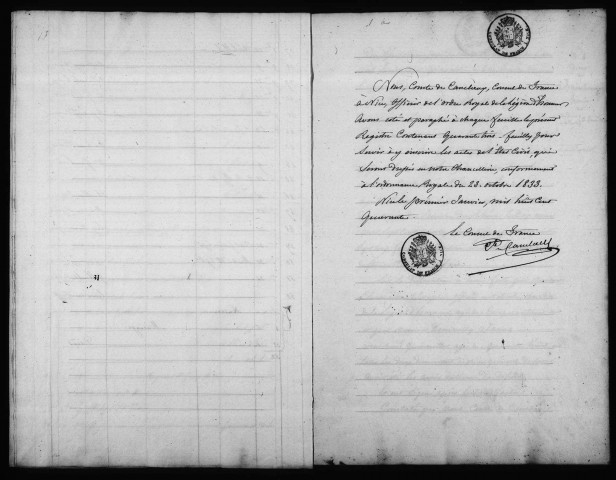 Nous, Comte de Canclaux, Consul de France
à Nice, officier de l'ordre Royal de la légion d'honneur
Avons coté et paraphé à chaque feuille le présent
Registre Contenant quarante trois feuilles pour
Servir à y inscrire les actes de l'Etat Civil, qui
Seront dressés en notre Chancellerie, conformément
à l'ordonnance Royale du 23. octobre 1833.
Nice le premier Janvier, mil huit Cent
Quarante.
Le Consul de France
Canclaux